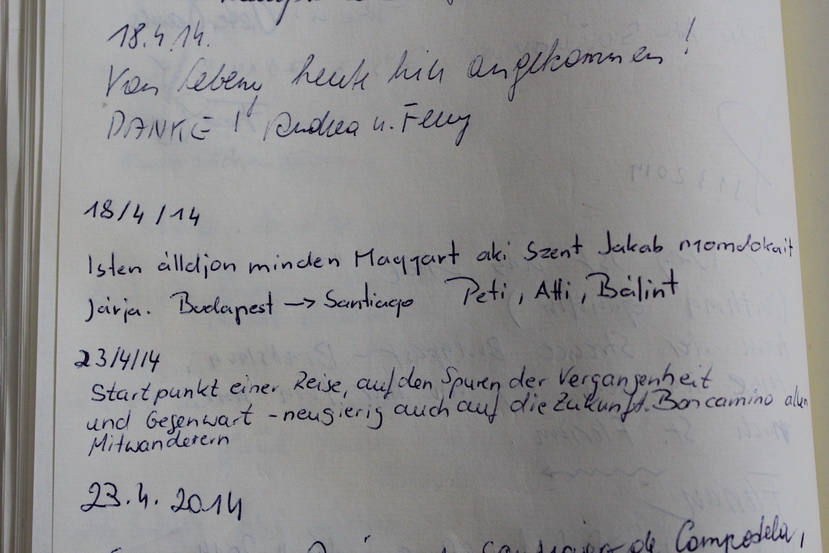 18.4.14.
heute hin angekommen!
DANKE! Andrea u.
18/4/14
Isten álldjon minden Magyart aki Szent Jakab nyomdokait
Járja. Budapest → Santiago Peti, Atti, Bálint
23/4/14
Startpunkt einer Reise, auf den Spuren der Vergangenheit
und Gegenwart - neugierig auch auf die Zukunft. Boncamino allen
Mitwanderern
23.4.2014
de Compostela,